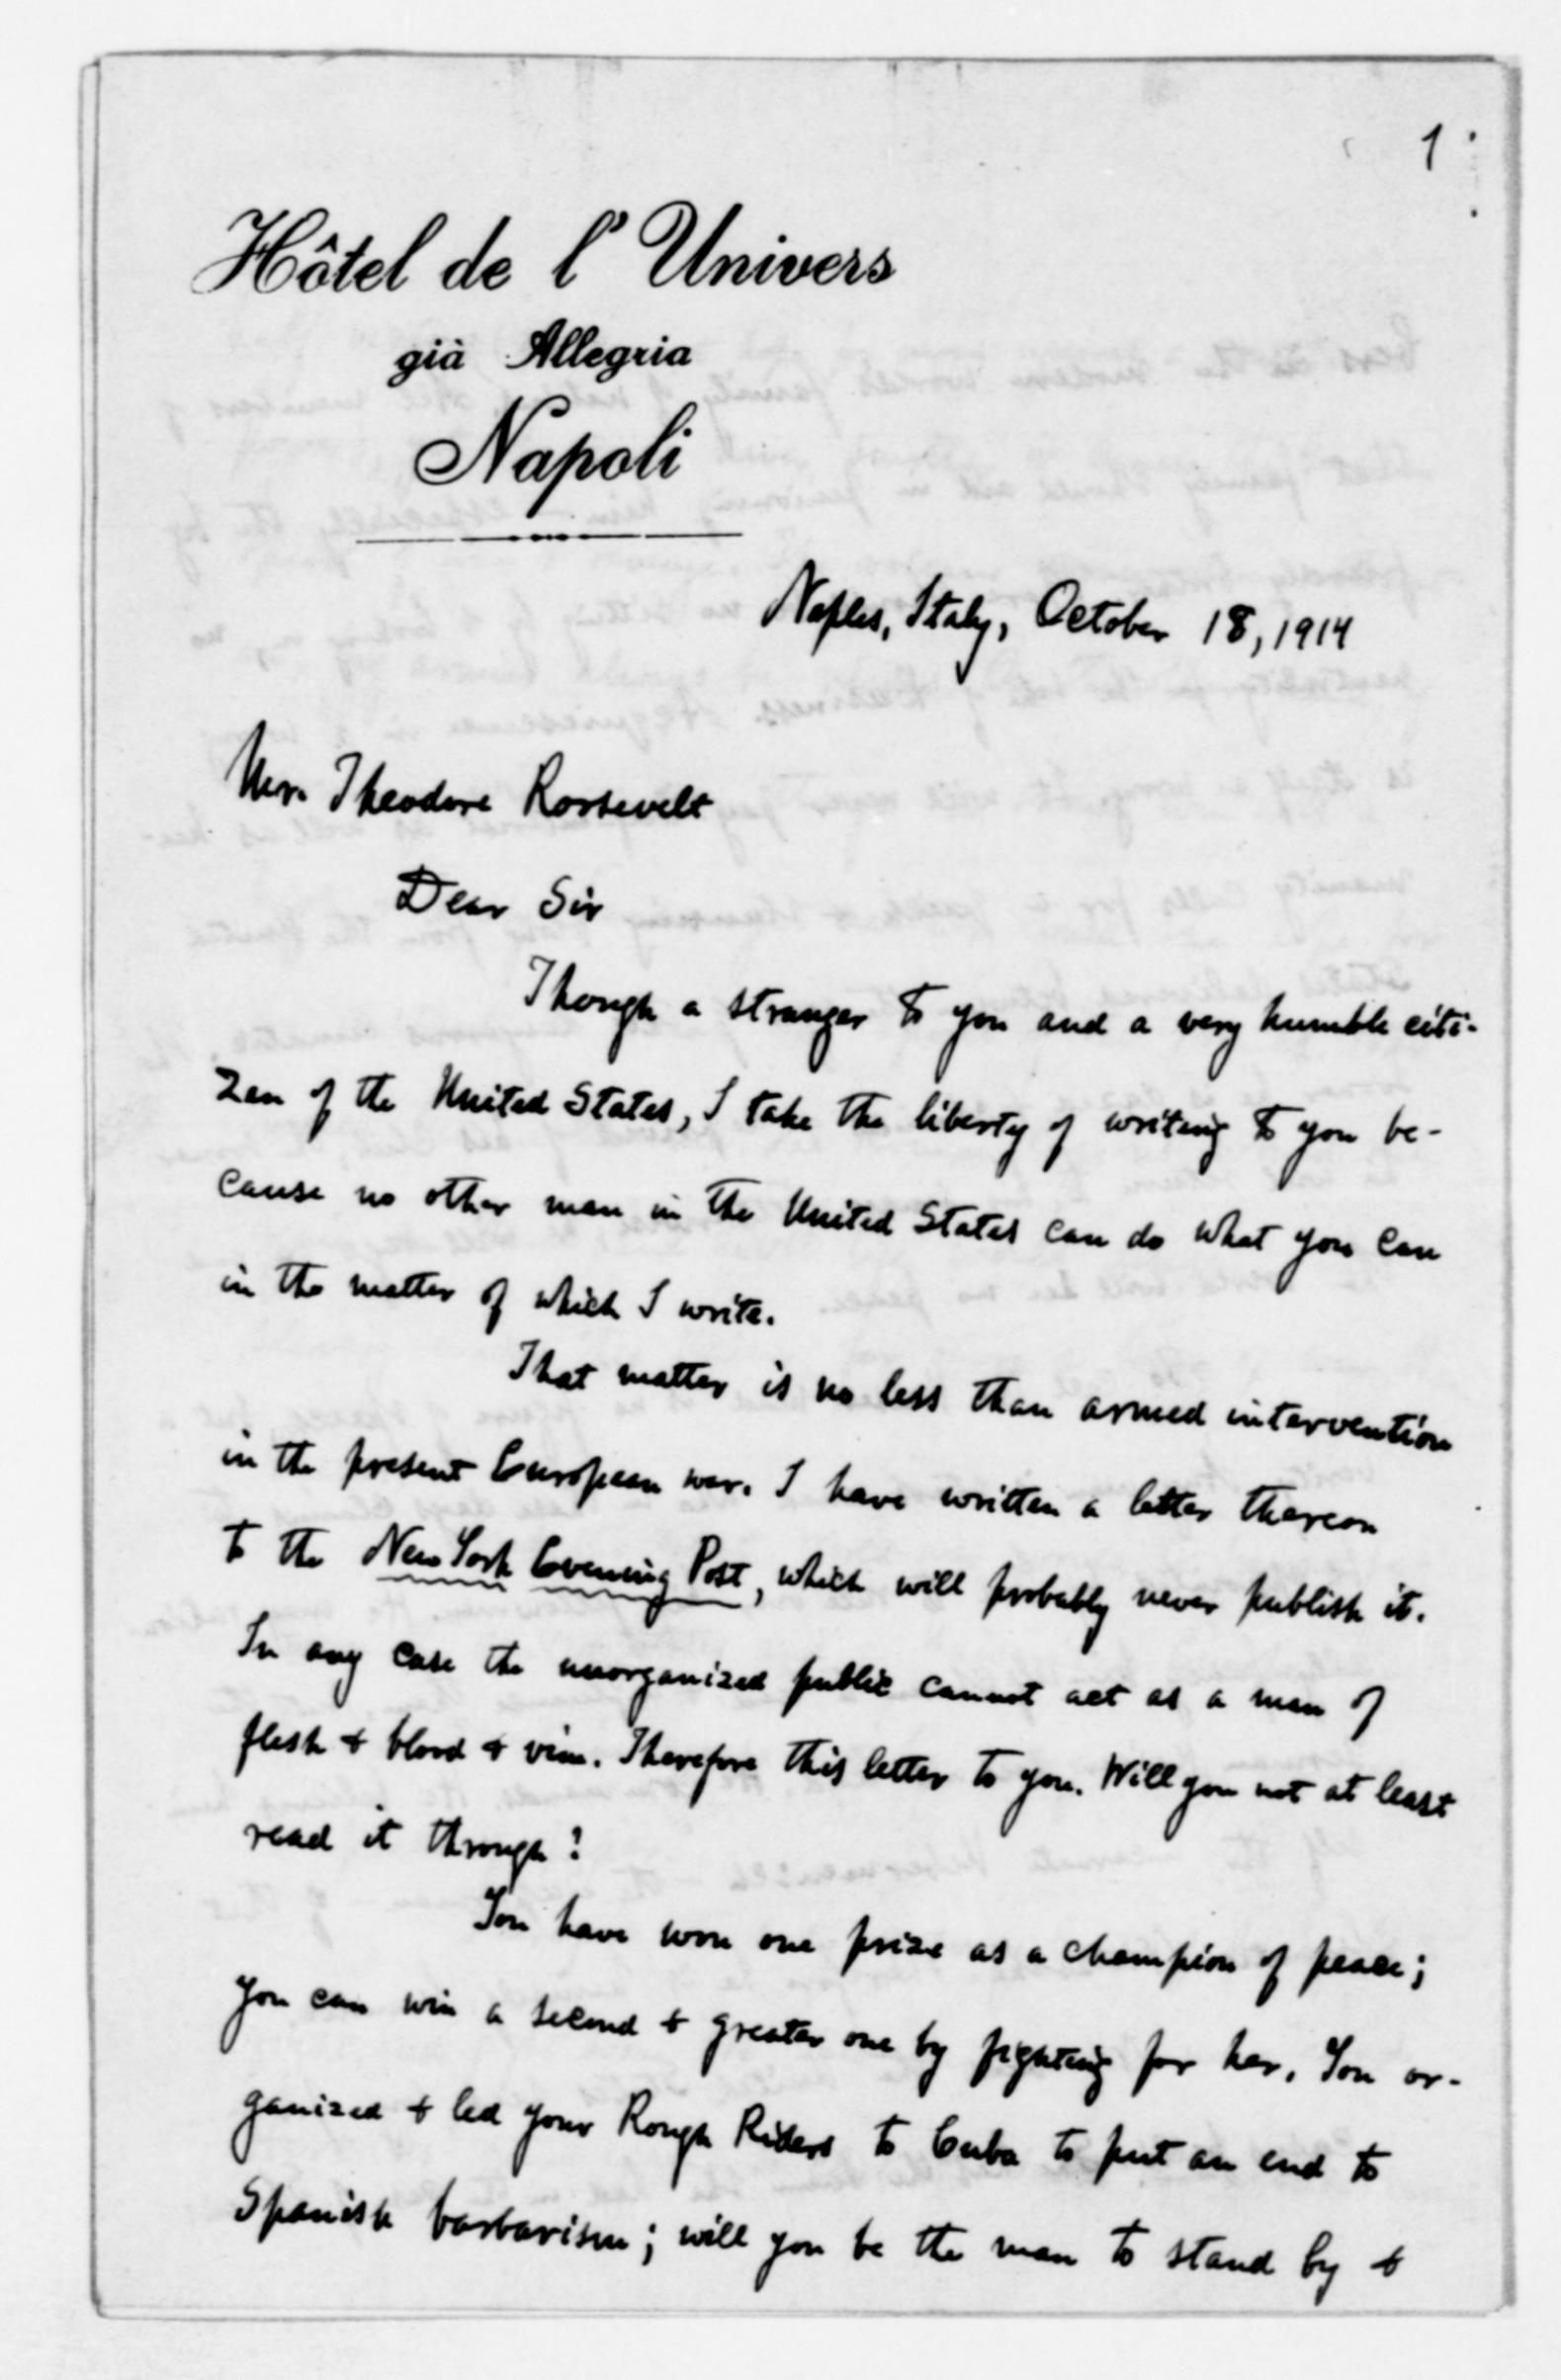 1
Hôtel de l'Univers
già Allegria
Napoli
Naples, Italy, October 18, 1914
Mr. Theodore Roosevelt
Dear Sir
Though a stranger to you and a very humble citi-
zen of the United States, I take the liberty of writing to you be-
cause no other man in the United States can do what you can
in the matter of which I write.
That matter is no less than armed intervention
in the present European war. I have written a letter thereon
to the New York Evening Post, which will probably never publish it.
In any case the unorganized public cannot act as a man of
flesh & blood & vim. Therefore this letter to you. Will you not at least
read it through?
You have won one prize as a champion of peace;
you can win a second & greater one by fighting for her. You or-
ganized & led your Rough Riders to Cuba to put an end to
Spanish barbarism; will you be the man to stand by &